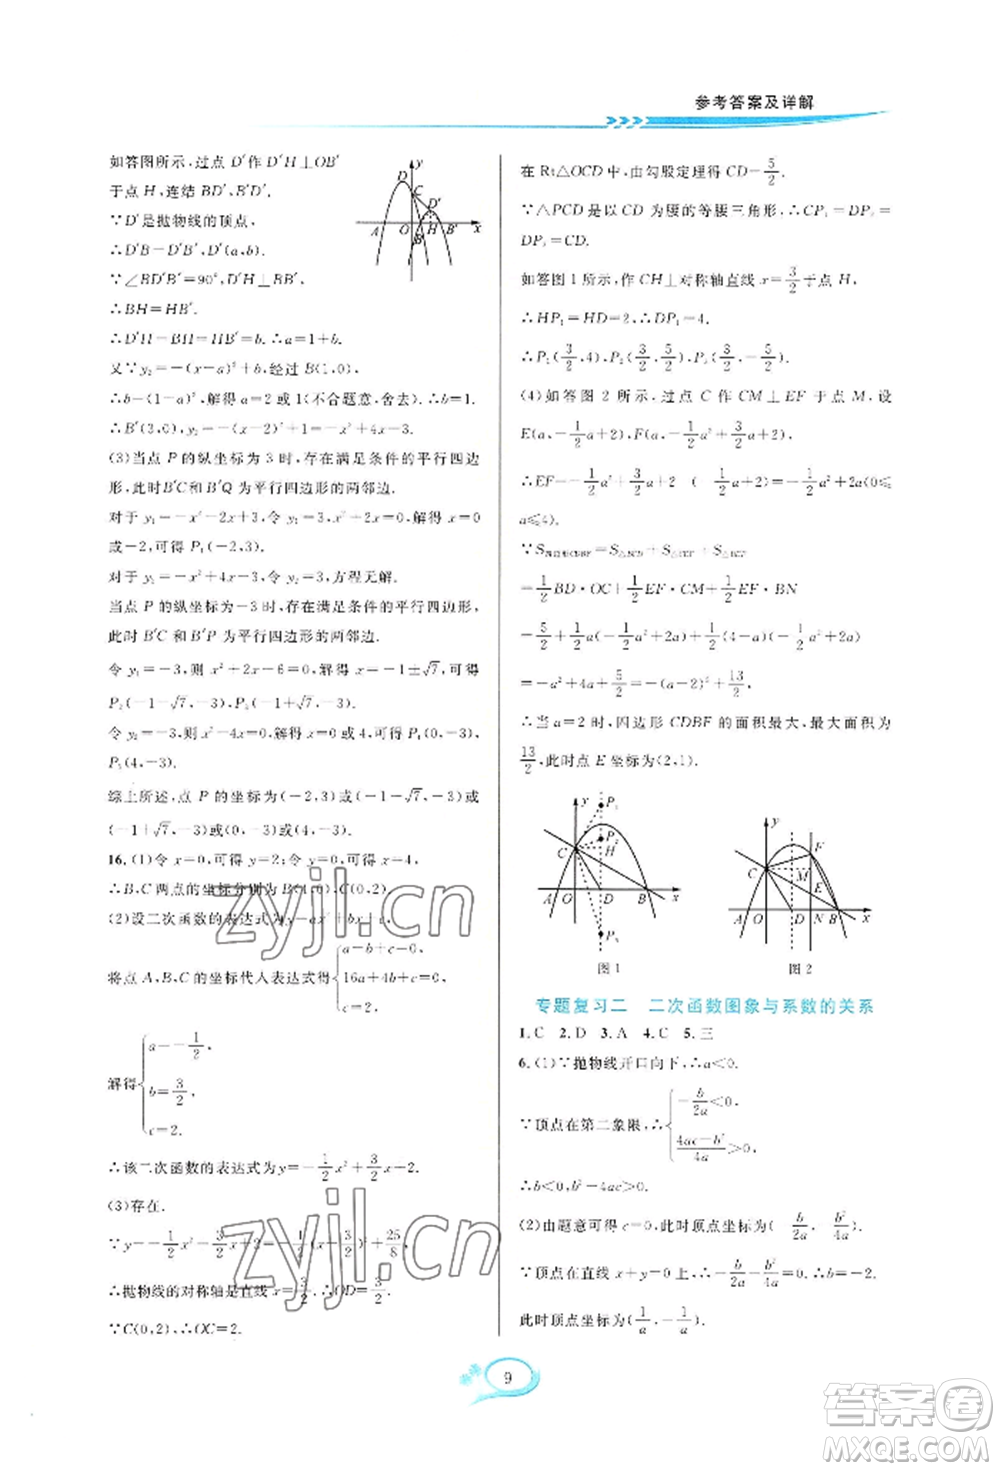 参考答案及详解
如答图所示,过点 D′作 D′H⊥OB′
于点 H,连结 BD′,B′D′.
∵D′是抛物线的顶点,
∴D′B=D′B′,D′(a,b).
∵∠BD′B′=90°,D′H⊥BB′,
∴BH=HB′.
∴D′H=BH=HB′=b.∴a=1+b.
又∵y₂=-(x-a)²+b,经过 B(1,0),
∴b=(1-a)²,解得 a=2 或 1(不合题意,舍去).∴b=1.
∴B′(3,0),y₂=-(x-2)²+1=-x²+4x-3.
(3)当点 P 的纵坐标为 3 时,存在满足条件的平行四边
形,此时B′C和B′Q 为平行四边形的两邻边.
对于 y₁=-x²-2x+3,令 y₁=3,x²+2x=0,解得 x=0
或-2,可得 P₁(-2,3).
对于 y₂=-x²+4x-3,令 y₂=3,方程无解.
当点 P 的纵坐标为-3 时,存在满足条件的平行四边形,
此时 B′C 和 B′P 为平行四边形的两邻边.
令 y₁=-3,则 x²+2x-6=0,解得 x=-1±√7,可得
P₂(-1-√7,-3),P₃(-1+√7,-3).
令 y₂=-3,则 x²-4x=0,解得 x=0 或 4,可得 P₄(0,-3),
P₅(4,-3).
综上所述,点 P 的坐标为(-2,3)或(-1-√7,-3)或
(-1+√7,-3)或(0,-3)或(4,-3).
16.(1)令 x=0,可得 y=2;令 y=0,可得 x=4,
∴B,C 两点的坐标分别为B(4,0),C(0,2).
(2)设二次函数的表达式为y=ax²+bx+c,
将点 A,B,C 的坐标代入表达式得{a-b+c=0, 16a+4b+c=0, c=2.
解得{a=-1/2, b=3/2, c=2.
∴该二次函数的表达式为y=-1/2x²+3/2x+2.
(3)存在.
∵y=-1/2x²+3/2x+2=-1/2(x-3/2)²+25/8,
∴抛物线的对称轴是直线 x=3/2,∴OD=3/2.
∵C(0,2),∴OC=2.
在 Rt△OCD 中,由勾股定理得 CD=5/2.
∵△PCD 是以 CD 为腰的等腰三角形,∴CP₁=DP₂=
DP₃=CD.
如答图 1 所示,作 CH⊥对称轴直线 x=3/2于点 H,
∴HP₁=HD=2,∴DP₁=4.
∴P₁(3/2,4),P₂(3/2,5/2),P₃(3/2,-5/2).
(4)如答图 2 所示,过点 C 作 CM⊥EF 于点 M,设
E(a,-1/2a+2),F(a,-1/2a²+3/2a+2),
∴EF=-1/2a²+3/2a+2-(-1/2a+2)=-1/2a²+2a(0≤
a≤4).
∵S四边形CDBF=S△BCD+S△CEF+S△BEF
=1/2BD·OC+1/2EF·CM+1/2EF·BN
=5/2+1/2a(-1/2a²+2a)+1/2(4-a)(-1/2a²+2a)
=-a²+4a+5/2=-(a-2)²+13/2,
∴当 a=2 时,四边形 CDBF 的面积最大,最大面积为
13/2,此时点 E 坐标为(2,1).
y C P₁ P₂ H A O D B x P₃
图 1
y C F M E A O D N B x
图 2
专题复习二 二次函数图象与系数的关系
1.C 2.D 3.A 4.C 5.三
6.(1)∵抛物线开口向下,∴a<0.
∵顶点在第二象限,∴{-b/2a<0, (4ac-b²)/4a>0.
∴b<0,b²-4ac>0.
(2)由题意可得 c=0,此时顶点坐标为(-b/2a,-b²/4a).
∵顶点在直线 x+y=0 上,∴-b/2a-b²/4a=0.∴b=-2.
此时顶点坐标为(1/a,-1/a).
9
zyjl.cn
zyjl.cn
答案圈
MXQE.COM